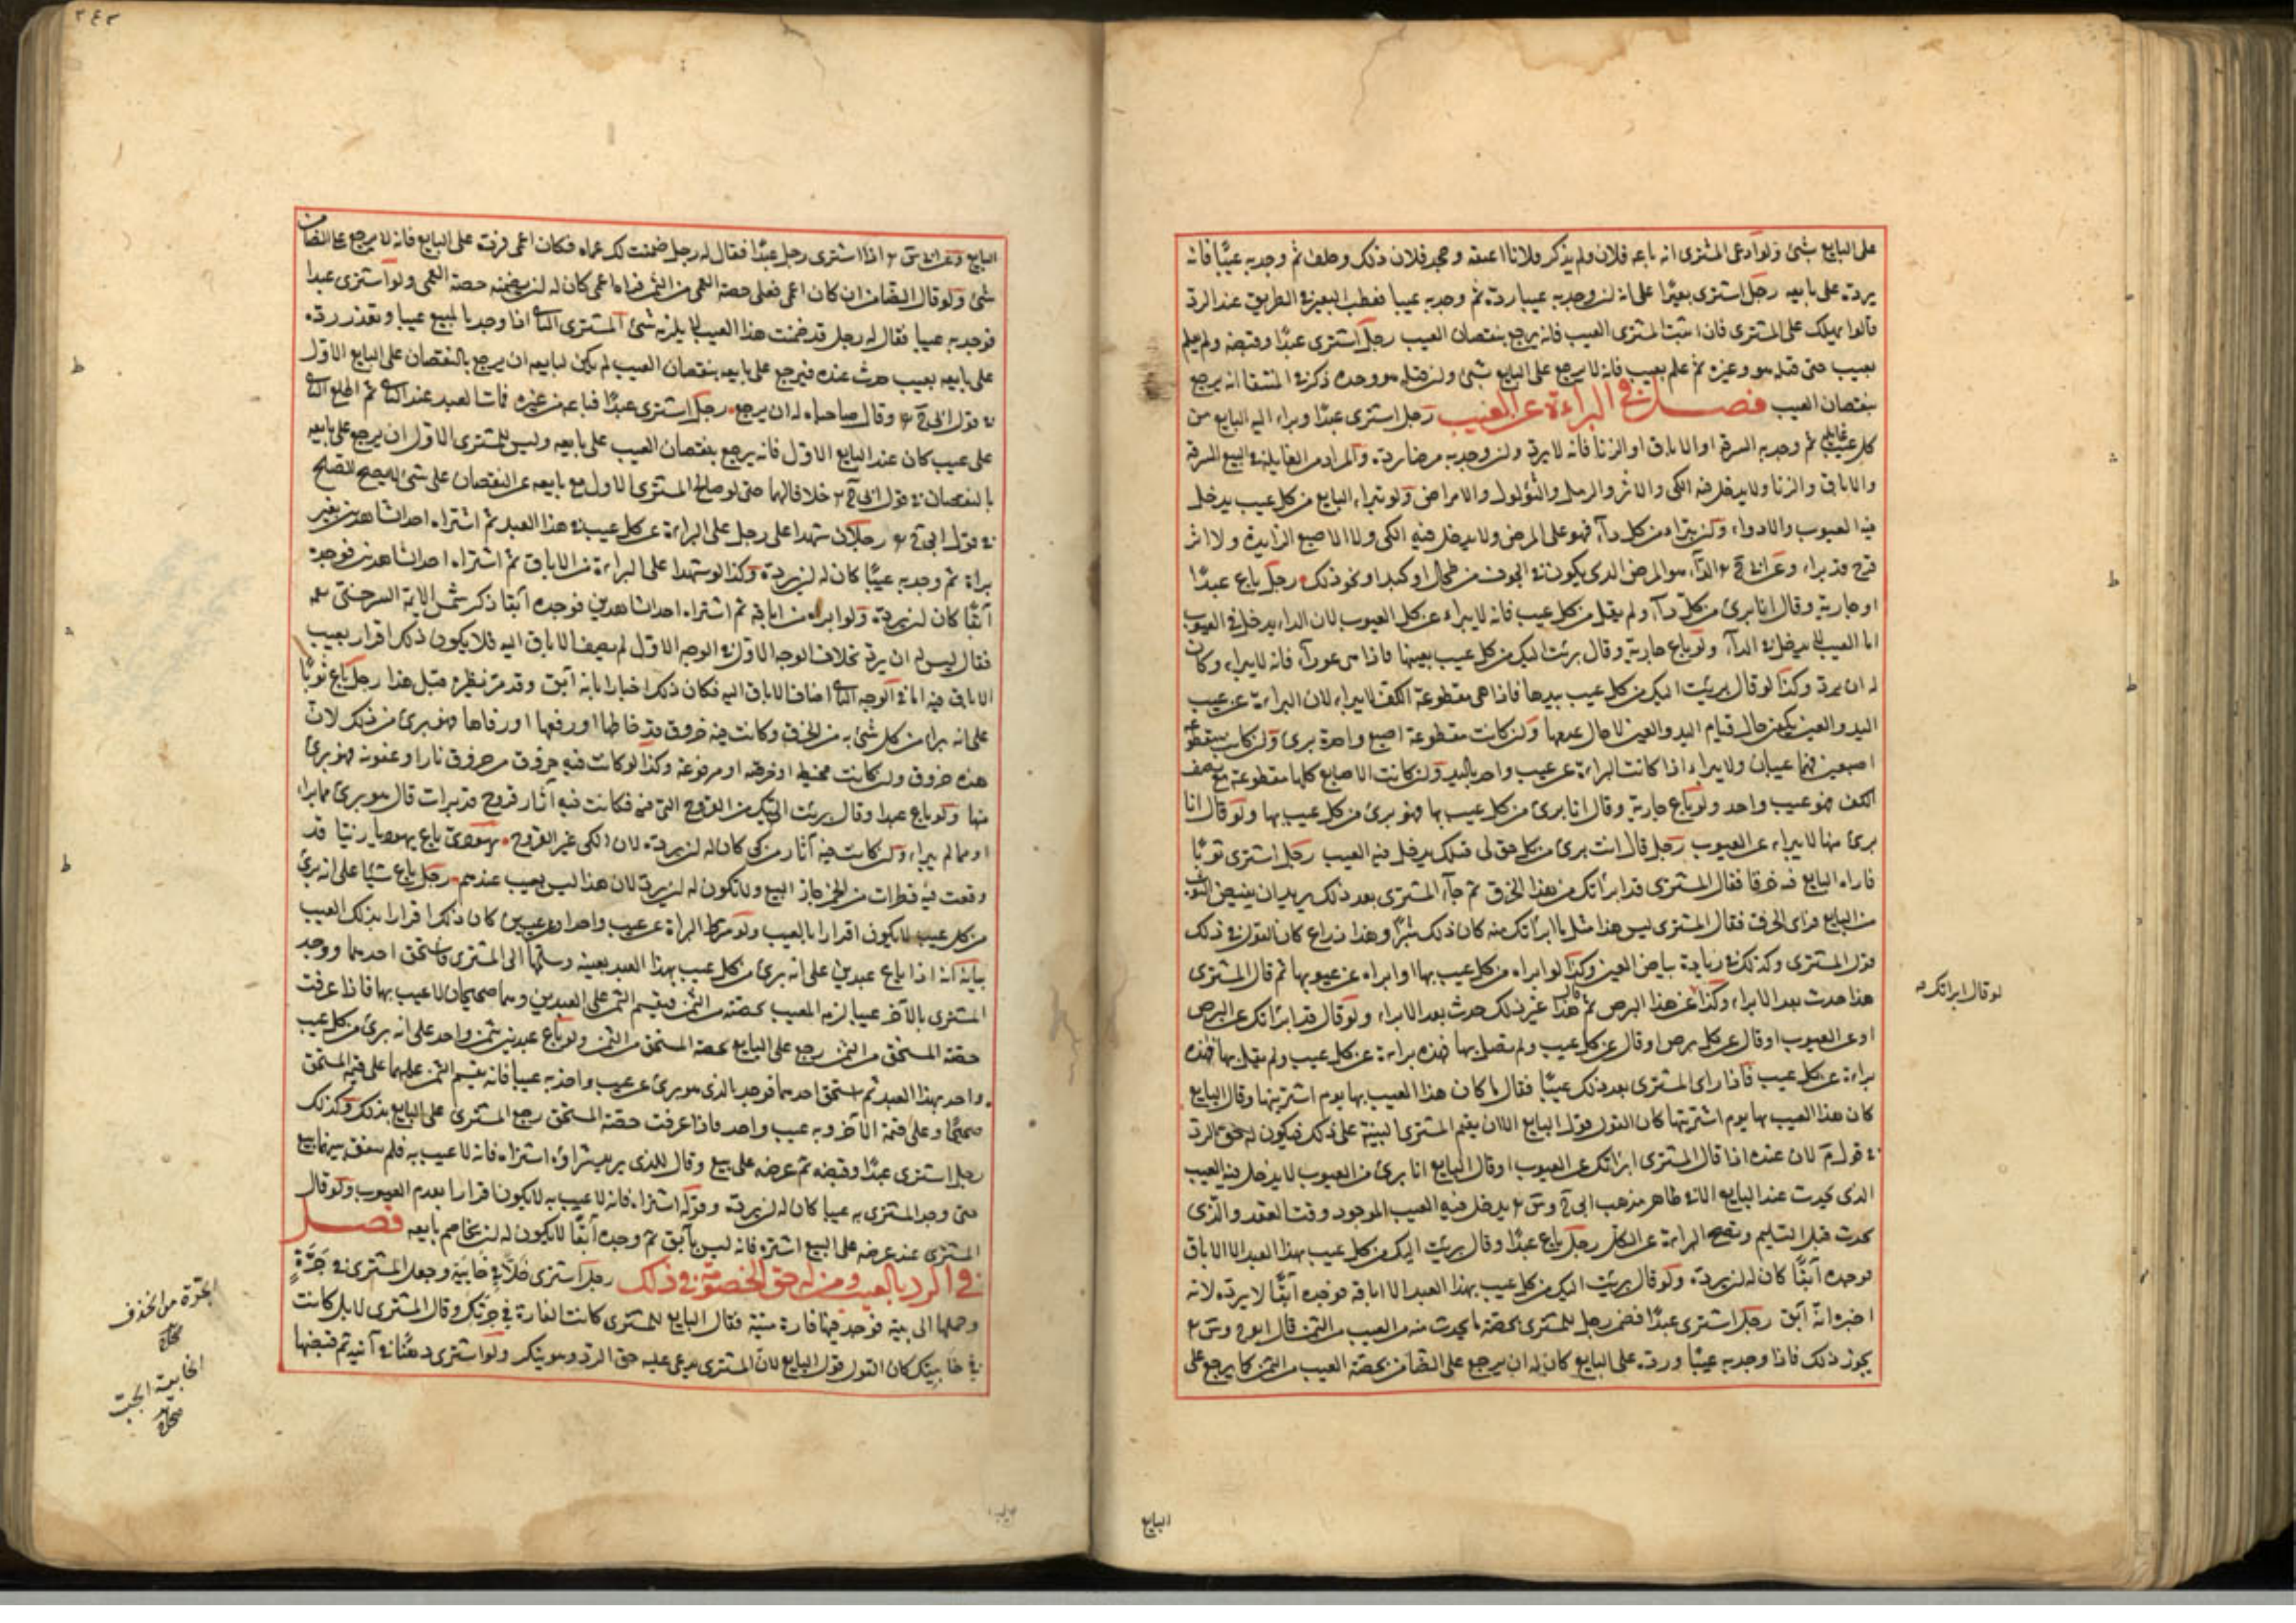 على البايع شئ ولو ادعى المشترى انه باعه فلان ولم يذكر فلانا اعتقه وجحد فلان ذلك وحلف ثم وجد به عيبًا فانه
يرده على بايعه رجل اشترى بعيرًا على انه لن وجد به عيبا رده ثم وجد به عيبا فعطب البعير في الطريق عند الرد
قالوا يهلك على المشترى فان اثبت المشترى العيب فانه يرجع بنقصان العيب رجل اشترى عبدًا وقبضه ولم يعلم
بعيب حتى قتله هو وغيره ثم علم بعيب فانه لا يرجع على البايع شئ ولن قتله هو وحده ذكر في المنتقا انه يرجع
بنقصان العيب فصل في البراءة عن العيب رجل اشترى عبدًا وبراء اليه البايع من
كل غايلة ثم وجد به السرقة او الاباق او الزنا فانه لا يرد ولن وجد به مرضا رده والمراد من الغايلة في البيع السرقة
والاباق والزنا ولا يدخل فيه الكى والاثر والدمل والثؤلول والامراض ولو تبراء البايع من كل عيب يدخل
فيه العيوب والادواء ولن تبراء من كل داء فهو على المرض ولا يدخل فيه الكى ولا الاصبع الزايدة ولا اثر
قرح قد براء وعن ابى ح الداء هو المرض الذى يكون في الجوف من طحال او كبد او نحو ذلك رجل باع عبدًا
او جارية وقال انا برئ من كل داء ولم يقل من كل عيب فانه لا يبراء عن كل العيوب لان الداء يدخل في العيوب
اما العيب لا يدخل في الداء ولو باع جارية وقال برئت اليك من كل عيب بعينها فاذا هى عوراء فانه لا يبراء وكان
له ان يرد وكذا لو قال برئت اليك من كل عيب بيدها فاذا هى مقطوعة الكف لا يبراء لان البراءة عن عيب
اليد والعين يكون حال قيام اليد والعين لا حال عدمها ولن كانت مقطوعة اصبع واحدة برئ ولن كانت مقطوعة
اصبعين فهما عيبان ولا يبراء اذا كانت البراءة عن عيب واحد باليد ولن كانت الاصابع كلها مقطوعة مع نصف
الكف فهو عيب واحد ولو باع جارية وقال انا برئ من كل عيب بها فهو برئ من كل عيب بها ولو قال انا
برئ منها لا يبراء عن العيوب رجل قال انت برئ من كل حق لى قبلك يدخل فيه العيب رجل اشترى ثوبًا
فاراه البايع فيه خرقا فقال المشترى قد ابرأتك من هذا الخرق ثم جاء المشترى بعد ذلك يريد ان يقبض الثوب
من البايع فراى الخرق فقال المشترى ليس هذا مثل ما ابراتك منه كان ذلك شبرًا وهذا ذراع كان القول في ذلك
قول المشترى وكذلك في زيادة بياض العين وكذا لو ابراه من كل عيب بها او ابراه عن عيوبها ثم قال المشترى
هذا حدث بعد الابراء وكذا عن هذا البرص ثم قال هذا غير ذلك حدث بعد الابراء ولو قال قد ابرأتك عن البرص
او عن العيوب او قال عن كل برص او قال عن كل عيب ولم يقل بها فهذه براءة عن كل عيب ولم يقل بها فهذه
براءة عن كل عيب فاذا راى المشترى بعد ذلك عيبًا فقال ما كان هذا العيب بها يوم اشتريتها وقال البايع
كان هذا العيب بها يوم اشتريتها كان القول قول البايع الا ان يقيم المشترى البينة على ذلك فيكون له حق الرد
في قول م لان عنده اذا قال المشترى ابرأتك عن العيوب او قال البايع انا برئ من العيوب لا يدخل فيه العيب
الذى يحدث عند البايع اما في ظاهر مذهب ابى ح وس يدخل فيه العيب الموجود وقت العقد والذى
يحدث قبل التسليم وتصح البراءة عن الكل رجل باع عبدًا وقال برئت اليك من كل عيب بهذا العبد الا الاباق
فوجده آبقًا كان له لن يرده ولو قال برئت اليك من كل عيب بهذا العبد الا اباقه فوجده آبقًا لا يرده لانه
اخبره انه آبق رجل اشترى عبدًا فضمن رجل للمشترى بحصة ما يحدث فيه من العيب من الثمن قال ابو ح وس
يجوز ذلك فاذا وجد به عيبًا ورده على البايع كان له ان يرجع على الضامن بحصة العيب من الثمن كما يرجع على
لو قال ابراتك
البايع
البايع وعن ابى س اذا اشترى رجل عبدًا فقال له رجل ضمنت لك عماه فكان اعمى فرده على البايع فانه لا يرجع على الضامن
شئ ولو قال الضامن ان كان اعمى فعلى حصة العمى من الثمن فرده اعمى كان له لن يضمنه حصة العمى ولو اشترى عبدا
فوجد به عيبا فقال له رجل قد ضمنت هذا العيب لا يلزمه شئ المشترى الثانى اذا وجد بالمبيع عيبا وتعذر رده
على بايعه بعيب حدث عنده فرجع على بايعه بنقصان العيب لم يكن لبايعه ان يرجع بالنقصان على البايع الاول
في قول ابى ح وقال صاحباه له ان يرجع رجل اشترى عبدًا فباعه من غيره فمات العبد عند الثانى ثم اطلع الثانى
على عيب كان عند البايع الاول فانه يرجع بنقصان العيب على بايعه وليس للمشترى الاول ان يرجع على بايعه
بالنقصان في قول ابى ح خلافا لهما حتى لو صالح المشترى الاول مع بايعه عن النقصان على شئ لا يصح الصلح
في قول ابى ح رجلان شهدا على رجل على البراءة عن كل عيب في هذا العبد ثم اشتراه احد الشاهدين بغير
براة ثم وجد به عيبًا كان له لن يرده وكذا لو شهدا على البراءة من الاباق ثم اشتراه احد الشاهدين فوجده
آبقًا كان له لن يرده ولو ابراه من اباقه ثم اشتراه احد الشاهدين فوجده آبقا ذكر شمس الايمة السرخسى
فقال ليس له ان يرده بخلاف الوجه الاول في الوجه الاول لم يضف الاباق اليه فلا يكون ذلك اقرار بعيب
الاباق فيه اما في الوجه الثانى اضاف الاباق اليه فكان ذلك اخبارا بانه آبق وقد مر نظيره قبل هذا رجل باع ثوبًا
على انه براء من كل شئ به من الخرق وكانت فيه خروق قد خاطها او رقعها او رفاها فهو برئ من ذلك لان
هذه خروق ولن كانت مخيطة او مرقعة او مرفوءة وكذا لو كانت فيه حروق من حروق نار او عفونة فهو برئ
منها ولو باع عبدا وقال برئت اليك من القروح التى فيه فكانت فيه آثار قروح قد برات قال هو برئ مما براء
او مما لم يبراء ولن كانت فيه آثار من كى كان له لن يرده لان الكى غير القروح يهودى باع يهوديا زيتا قد
وقعت فيه قطرات من الخمر جاز البيع ولا يكون له لن يرد لان هذا ليس بعيب عندهم رجل باع شيًا على انه برئ
من كل عيب لا يكون اقرارا بالعيب ولو شرط البراة عن عيب واحد او عيبين كان ذلك اقرارا بذلك العيب
بيانه انه اذا باع عبدين على انه برئ من كل عيب بهذا العبد بعينه وسلمهما الى المشترى فاستحق احدهما ووجد
المشترى بالآخر عيبا لزمه المعيب بحصته من الثمن فيقسم الثمن على العبدين وهما صحيحان لا عيب بهما فاذا عرفت
حصة المستحق من الثمن رجع على البايع بحصة المستحق من الثمن ولو باع عبدين بثمن واحد على انه برئ من كل عيب
واحد بهذا العبد ثم استحق احدهما فوجد بالذى هو برئ عن عيب واحد به عيبا فانه يقسم الثمن عليهما على قيمة المستحق
صحيحًا وعلى قيمة الآخر وبه عيب واحد فاذا عرفت حصة المستحق رجع المشترى على البايع بذلك وكذلك
رجل اشترى عبدًا وقبضه ثم عرضه على بيع وقال للذى يريد شراؤه اشتراه فانه لا عيب به فلم يتفق بينهما بيع
حتى وجد المشترى به عيبا كان له لن يرده وقوله اشتراه فانه لا عيب به لا يكون اقرارا بعدم العيوب ولو قال
المشترى عند عرضه على البيع اشتره فانه ليس بآبق ثم وجده آبقًا لا يكون له لن يخاصم بايعه فصل
في الرد بالعيب ومن له حق الخصومة في ذلك رجل اشترى خلًا في خابية وجعل المشترى في جرّة
وحملها الى بيته فوجد فيها فارة ميتة فقال البايع للمشترى كانت الفارة في جرتك وقال المشترى لا بل كانت
في خابيتك كان القول قول البايع لان المشترى يدعى عليه حق الرد وهو ينكر ولو اشترى دهنًا في آنية ثم قبضها
الجرة من الخزف
صحاح
الخابية الحب
صحاح